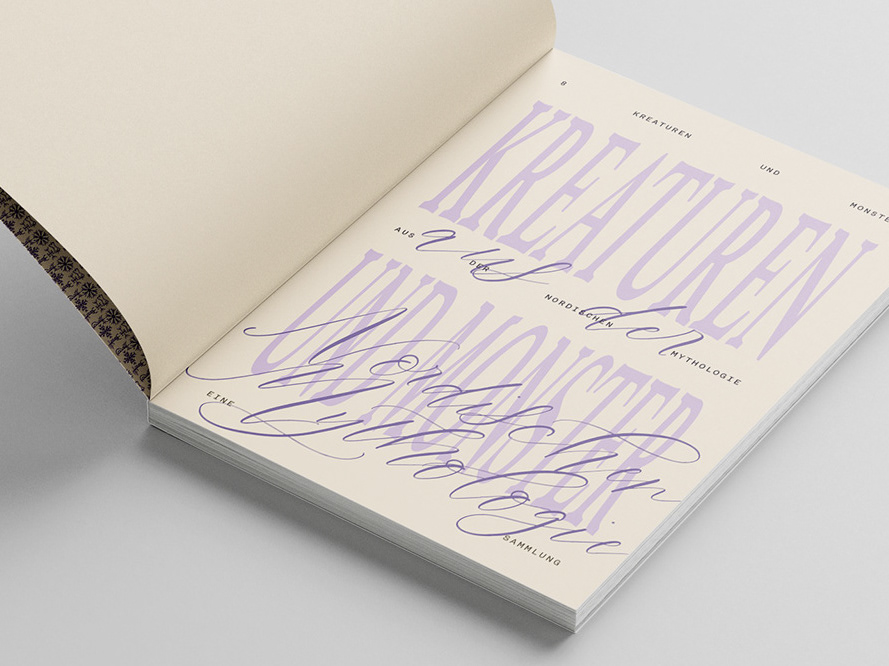 8 KREATUREN UND MONSTE
KREATUREN
aus der
AUS DER NORDISCHEN MYTHOLOGIE
UND MONSTER
Nordischen
Mythologie
EINE SAMMLUNG